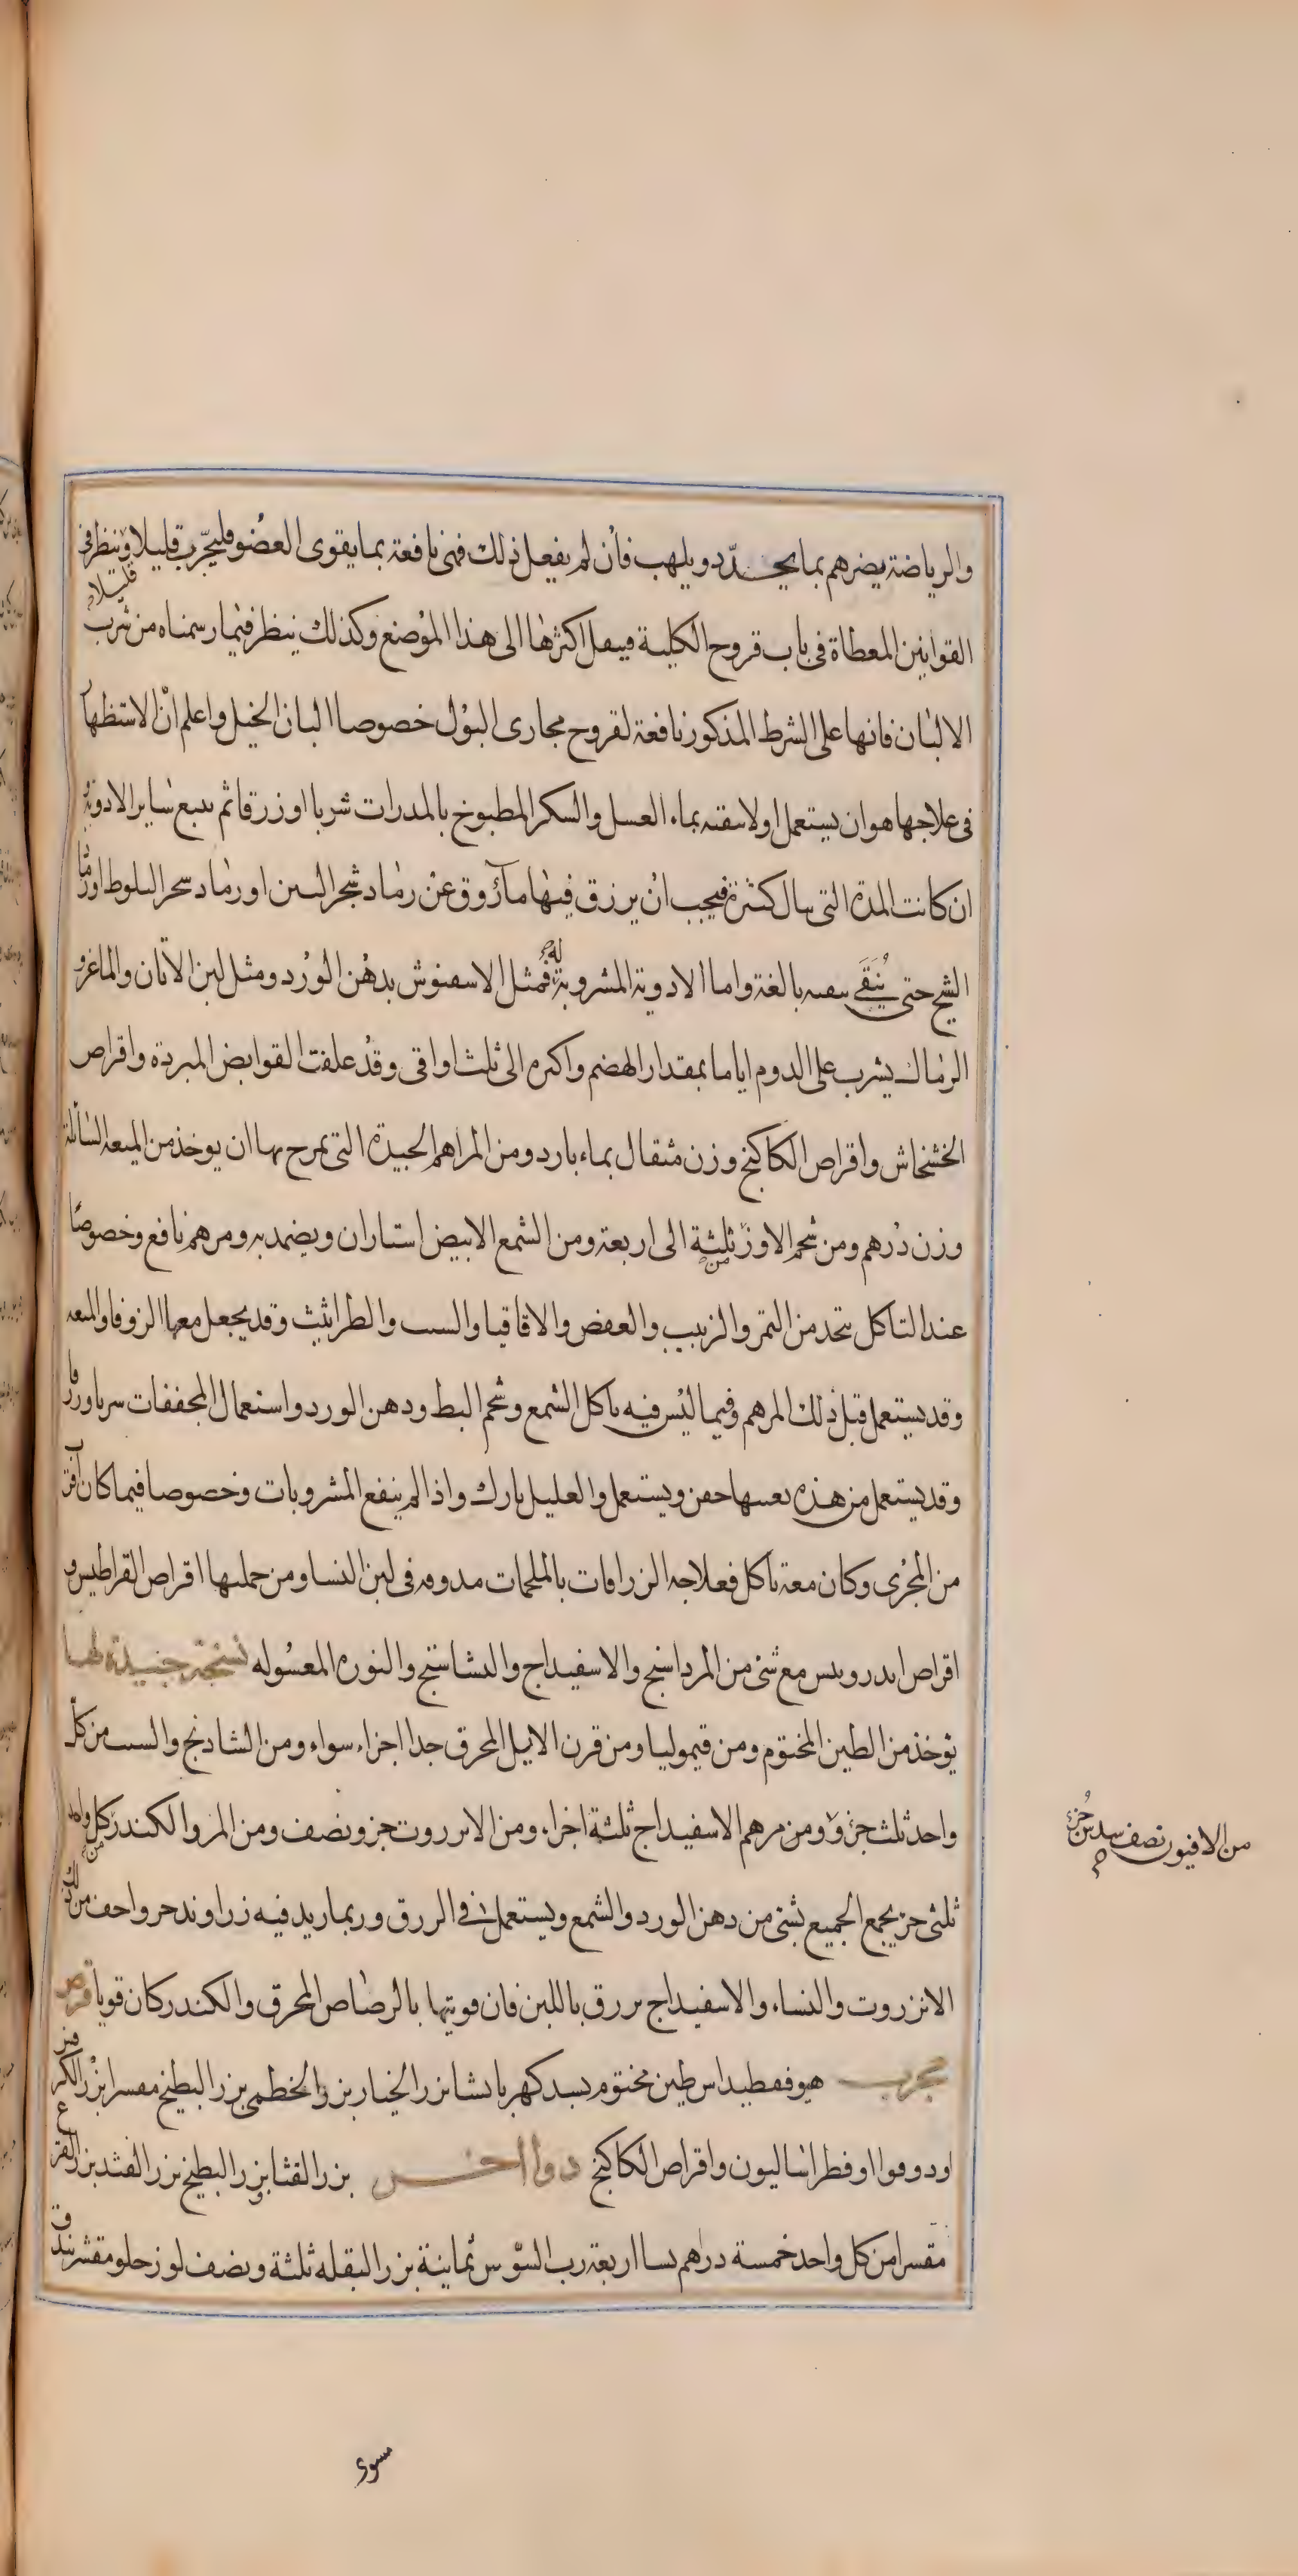 والرياضة يضرهم بما يحدّد ويلهب فأن لم يفعل ذلك فهى نافعة بما يقوى العضو فليجرّب قليلا قليلا وينظر فى
القوانين المعطاة فى باب قروح الكلية فينقل اكثرها الى هذا الموضع وكذلك ينظر فيما رسمناه من شرب
الالبان فانها على الشرط المذكور نافعة لقروح مجارى البول خصوصا البان الخيل واعلم انّ الاستظهار
فى علاجها هو ان يستعمل اولا سقيه بماء العسل والسكر المطبوخ بالمدرات شربا او زرقا ثم يتبع ساير الادوية
ان كانت المدة التى كثيرة فيجب ان يزرق فيها ماء روق عن رماد شجر التين او رماد شجر البلوط او رماد
الشيح حتى يُنَقَى بالغة واما الادوية المشروبة له فمثل بدهن الورد ومثل لبن الاتان والماعز و
الرماك يشرب على الدوم اياما بمقدار الهضم واكثره الى ثلث اواقى وقد علفت القوابض المبردة واقراص
الخشخاش واقراص الكاكنج وزن مثقال بماء بارد ومن المراهم الجيدة التى يمرح بها ان يوخذ من الميعة السائلة
وزن درهم ومن شحم الاوزّ من ثلثة الى اربعة ومن الشمع الابيض استاران ويضمد به ومرهم نافع وخصوصًا
عند التاكل يتخذ من التمر والزبيب والعفص والاقاقيا والشب والطراثيث وقد يجعل معها الزوفا والميعه
وقد يستعمل قبل ذلك المرهم وفيما ليس فيه تاكل الشمع وشحم البط ودهن الورد واستعمال المجففات شربا وزرقا
وقد يستعمل من هذه بعينها حقن ويستعمل والعليل بارك واذا لم ينفع المشروبات وخصوصا فيما كان اقرب
من المجرى وكان معه تاكل فعلاجه الزراقات بالملحمات مدوفه فى لبن النسا ومن جملتها اقراص القراطيس و
اقراص اندرونيس مع شئ من المرداسنج والاسفيداج والنشاستج والنوره المغسوله نسخة جيدة لها
يوخذ من الطين المختوم ومن قيموليا ومن قرن الايل المحرق جدا اجزاء سواء ومن الشادنج والشب من كل
واحد ثلث جزؤ ومن مرهم الاسفيداج ثلثة اجزاء ومن الانزروت جزو ونصف ومن المر والكندر من كل واحد
ثلثى جز يجمع الجميع بشئ من دهن الورد والشمع ويستعمل فى الزرق وربما زيد فيه زراوند مدحرج واخف من ذلك
الانزروت والنشاء والاسفيداج يزرق باللبن فان قويتها بالرصاص المحرق والكندر كان قويا قرص
مجرب هيوفقطيداس طين مختوم بسد كهربا نشا بزر الخيار بزر الخطمى بزر البطيخ مقشرا بزر الكرفس
او دوقوا او فطراساليون واقراص الكاكنج دوا اخر بزر القثا وبزر البطيخ بزر القثد بزر القرع
مقشرا من كل واحد خمسة دراهم نشا اربعة رب السوس ثمانية بزر البقله ثلثة ونصف لوز حلو مقشر بندق
من الافيون نصف سدس جزء